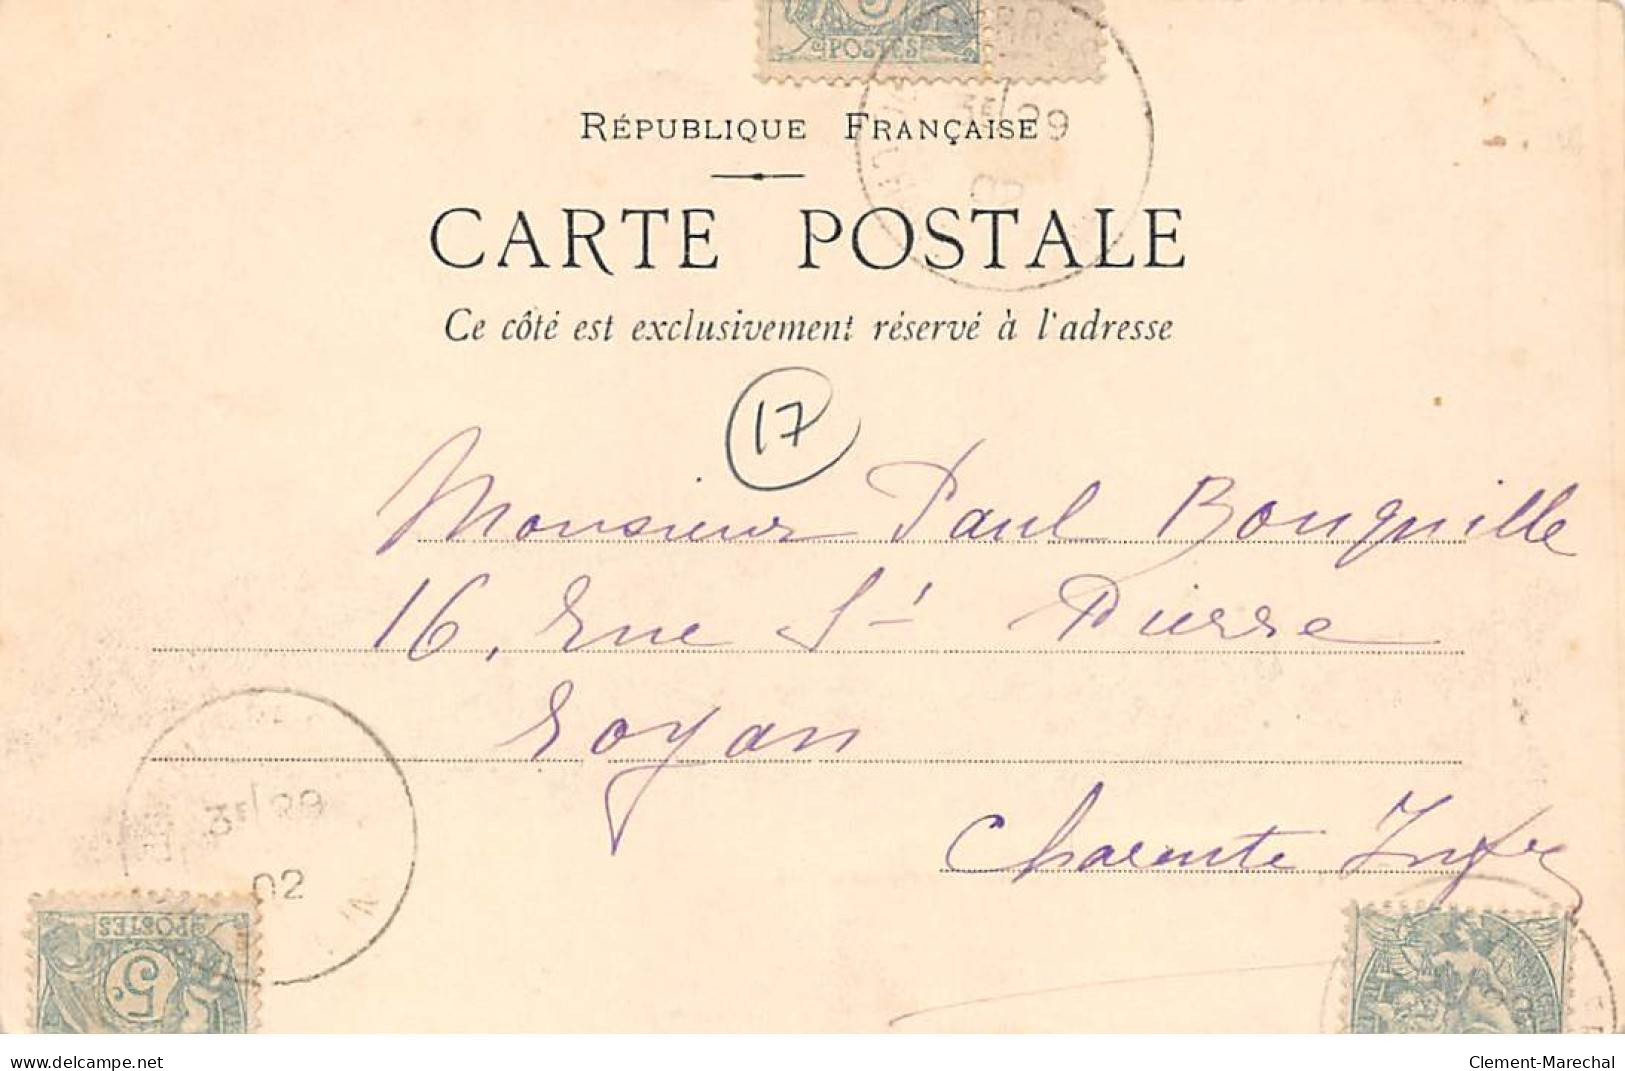 POSTES
RÉPUBLIQUE FRANÇAISE
CARTE POSTALE
Ce côté est exclusivement réservé à l'adresse
17
Monsieur Paul Bouquille
16, rue St Pierre
Royan
Charente Infre
3E/29
02
3E/29
02
POSTES
5c
delcampe.net
Clement-Marechal